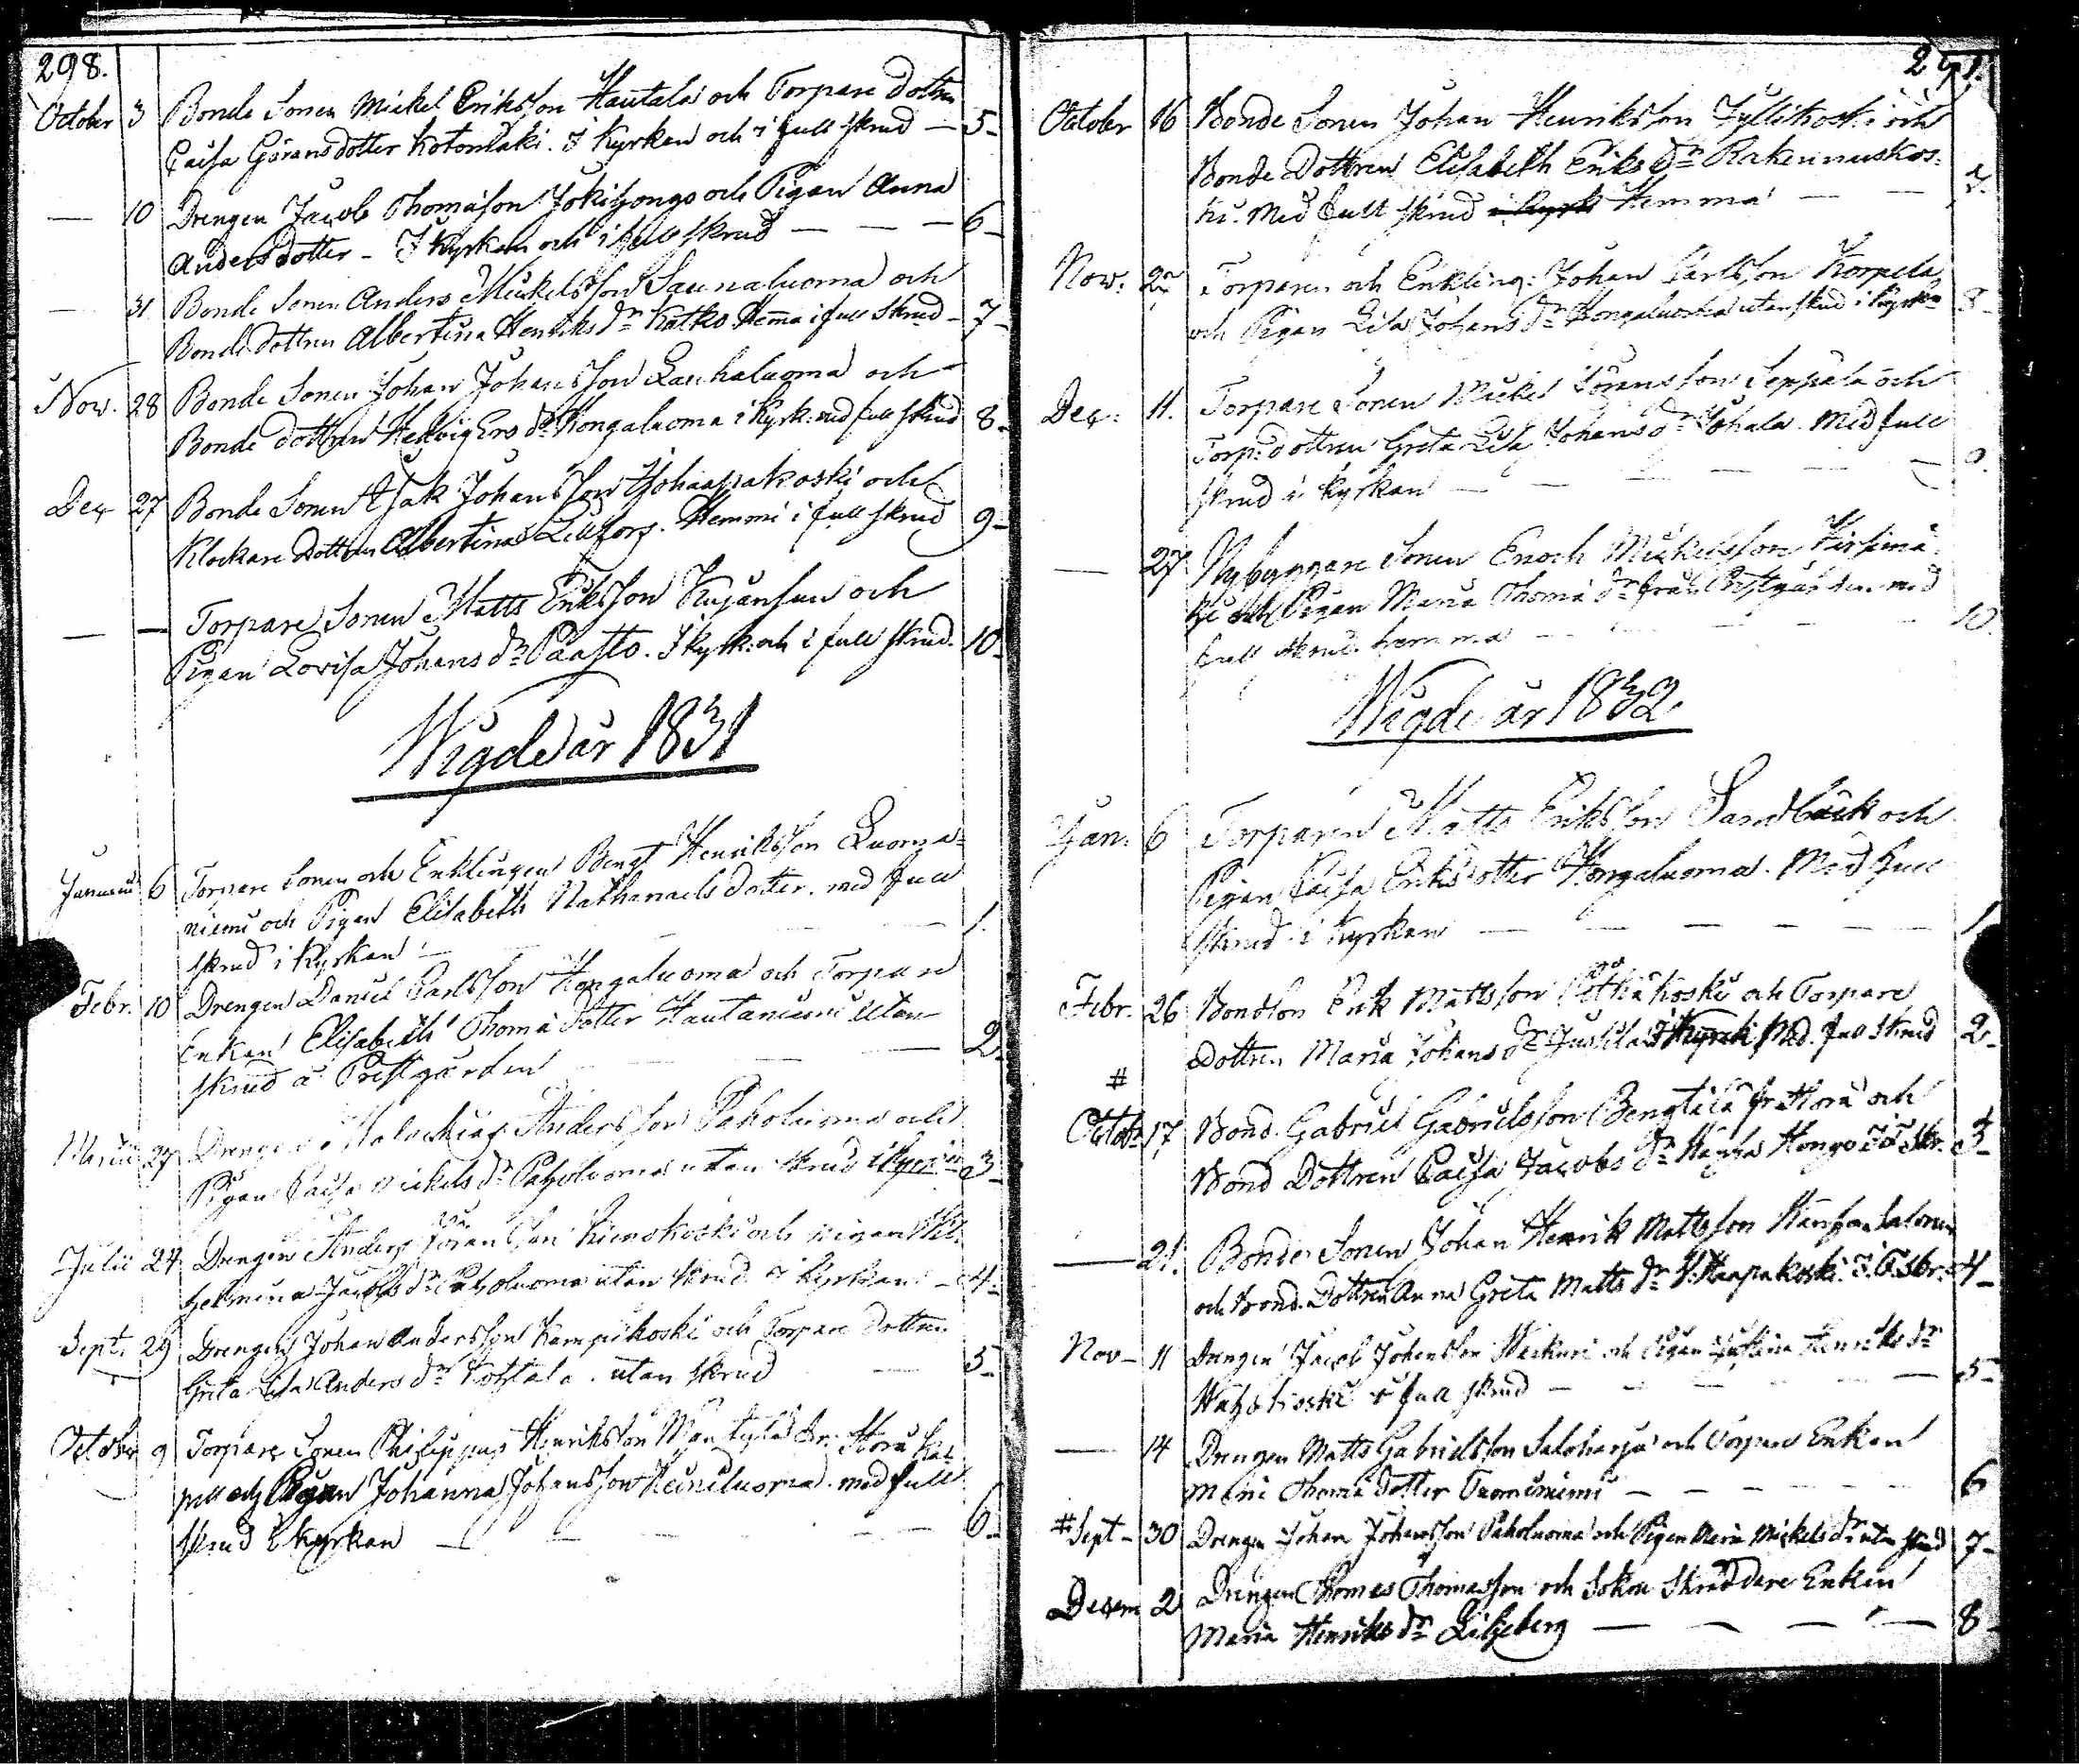 298.
October 3 Bonde Sonen Mickel Eriksson Hautala och Torpare Dottren
Caisa Göransdotter Kotomäki. I Kyrkan och i full skrud — 5-
— 10 Drengen Jacob Thomasson Jokihongo och Pigan Anna
Andersdotter - I Kyrkan och i full skrud — — — 6-
— 31 Bonde Sonen Anders Mickelsson Saunaluoma och
Bonde dottren Albertina Henriks dr Katko Hema i full skrud - 7-
Nov. 28 Bonde Sonen Johan Johansson Lauhaluoma och
Bonde dottren Hedvig Ers dr Hongaluoma i Kyrk. med full skrud 8-
Dec 27 Bonde Sonen Isak Johansson Haapakoski och
Klockare Dottren Albertina Lillfors. Hemma i full skrud 9-
— — Torpare Sonen Matts Eriksson Kujansuu och
Pigan Lovisa Johans dr Paasto. I kyrk. och i full skrud. 10-
Wigde år 1831
Januarii 6 Torpare Sonen och Enklingen Bengt Henriksson Luoma=
niemi och Pigan Elisabeth Nathanaels dotter. med full
skrud i Kyrkan — — — 1.
Febr. 10 Drengen Daniel Carlsson Hongaluoma och Torpare
Enkan Elisabeth Thomædotter Hautaniemi utan
skrud å Prestgården — — — 2.
Martii 27 Drengen Malachias Andersson Paholuoma och
Pigan Caisa Mickels dr Paholuoma utan skrud i Kyrkan 3-
Julii 24 Drengen Anders Göransson Liinakoski och Pigan Wil
helmina Jacobs dr Paholuoma utan skrud i Kyrkan - 4-
Sept. 29 Drengen Johan Andersson Kampikoski och Torpare Dottren
Greta Lisa Anders dr Kohtala. utan skrud — 5-
October 9 Torpare Sonen Philippus Henriksson Mäntylä fr. Storå Kap
pell och Pigan Johanna Johansson Heiniluoma. med full
skrud i kyrkan — — — — — 6-
291.
October 16 Bonde Sonen Johan Henriksson Syllikoski och
Bonde Dottren Elisabeth Eriks dr Rakennuskos:
ki. Med full skrud i Kyrk Hemma — — 7.
Nov: 27 Torparen och Enkling: Johan Carlsson Korpela
och Pigan Lisa Johans dr Hongaluoma utan skrud i Kyrkan 8-
Dec: 11. Torpare Sonen Mickel Göransson Seppälä och
Torp: dottren Greta Lisa Johans dr Johala. Med full
skrud i kyrkan — — — — — 9.
— 27 Nybyggare Sonen Enoch Mickelsson Kirsimä
ki och Pigan Maria Thomæ dr från Prestgården. med
full skrud hemma — — — — 10.
Wigde år 1832.
Jan: 6 Torparen Matts Eriksson Sandbäck och
Pigan Caisa Eriksdotter Hongaluoma. Med full
skrud i Kyrkan — — — — — 1
Febr. 26 Bondson Erik Mattsson Pitkäkoski och Torpare
dottren Maria Johans dr Jussila i Kyrck Med. full skrud 2-
#
Octobr 17 Bond. Gabriel Gabrielsson Bengtilä fr Storå och
Bond Dottren Caisa Jacobs dr Hanka Hongo I F. skr. 3-
— 21. Bonde Sonen Johan Henrik Mattsson Kanka Salonen
och Bond. Dottren Anna Greta Matts dr W. Haapakoski. I. F. Skr. 4-
Nov - 11 Drengen Jacob Johansson Wäskuri och Pigan Justina Henriks dr
Kahtkoski i full skrud — — — — — 5-
— 14 Drengen Matts Gabrielsson Saloharju och Torpare Enkan
Maria Thomædotter Tuominiemi — — — — — 6
# Sept - 30 Drengen Johan Johansson Paholuoma och Pigan Maria Mickels dr utan skrud 7-
Decem 2 Drengen Thomas Thomasson och Sokne Skräddare Enkan
Maria Henriks dr Liljeberg — — — — — 8-